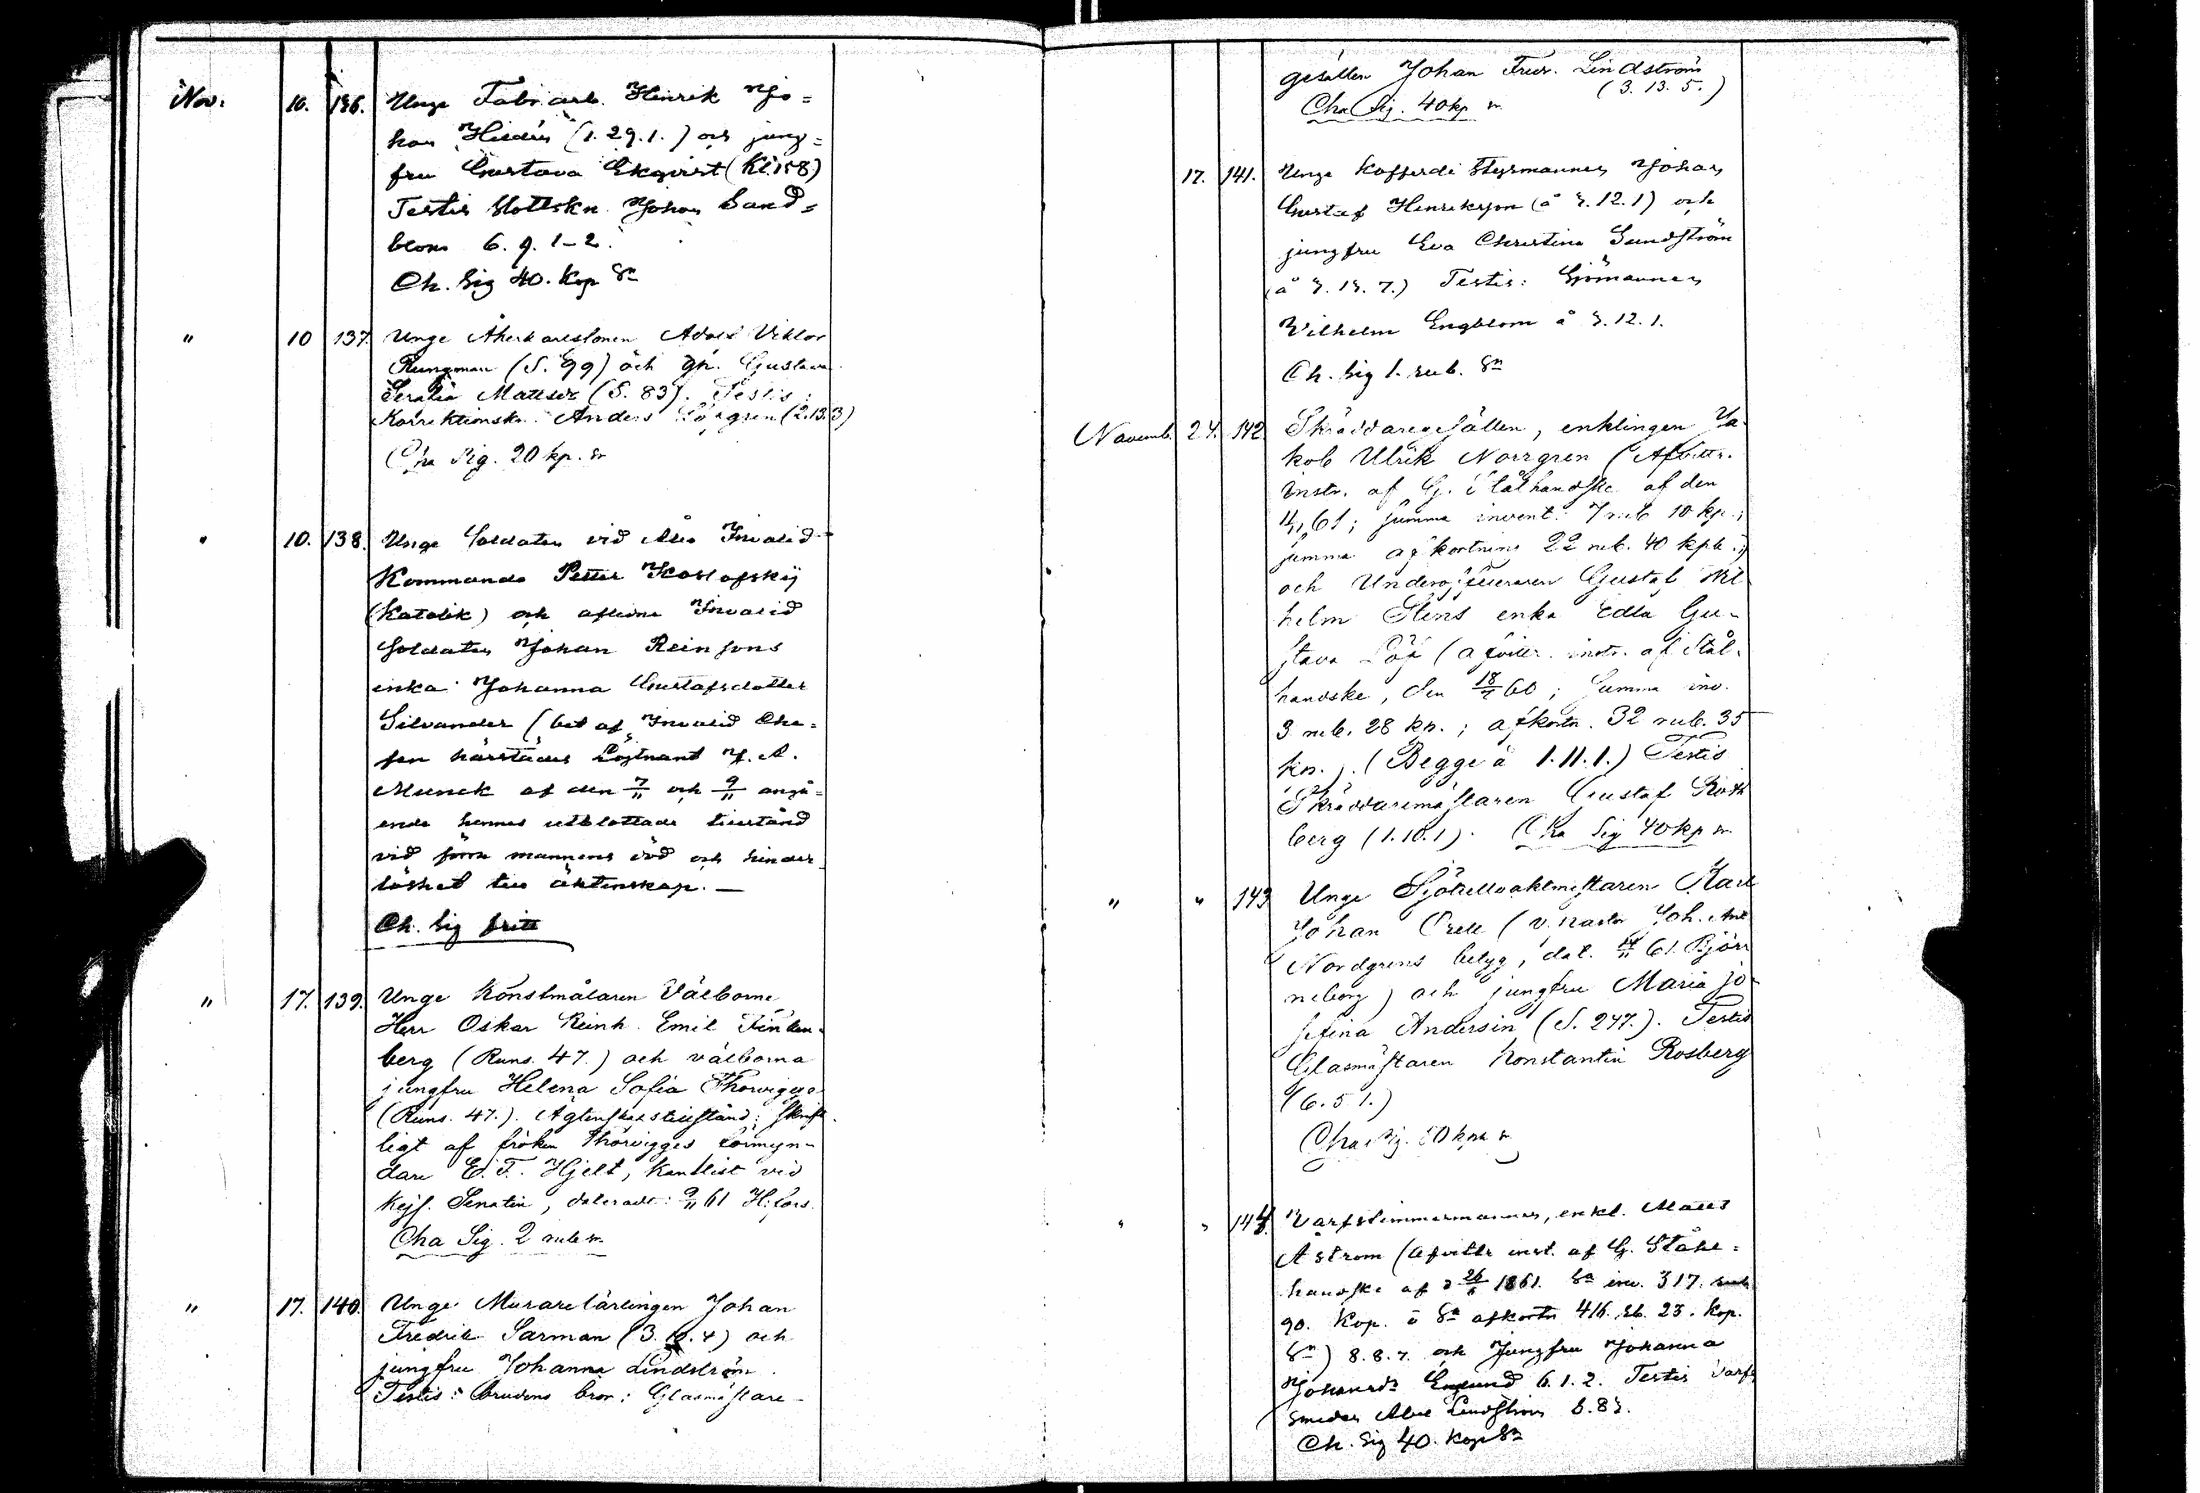 Nov. 10. 136. Unge Fabr.arb. Henrik Jo=
han Hedén (1.29.1.) och jung=
fru Gustava Ekqvist (Kl. 158)
Testis Slottskn. Johan Sand=
blom 6. 9. 1-2.
Ch. Sig 40. Kop Sr
" 10 137. Unge Åkerkarlssonen Adolf Viktor
Rungman (S. 99) och pn. Gustava
Serafia Matts (S. 83). Testis:
Korrektionskn. Anders Löfgren (2.13.3)
Cha Sig. 20 kp. sr
" 10. 138. Unge Soldaten vid Åbo Invalid-
Kommando Petter Koslofskij
(Katolik) och aflidne Invalid
Soldaten Johan Reinsons
enka Johanna Gustafsdotter
Silvander (bet af Invalid Che=
fen härstädes Löjtnant J. A.
Munck af den 7/11 och 9/11 angå=
ende hennes utblottade tillstånd
vid förra mannens död och hinder
löshet till äktenskap. —
Ch. Sig fritt
" 17. 139. Unge Konstmålaren Välborne
Herr Oskar Reinh. Emil Finken-
berg (Runs. 47.) och välborna
jungfru Helena Sofia Thorvigge
(Runs. 47.). Agtenskapstillstånd: skrift-
ligt af fröken Thorvigges förmyn-
dare E. F. Hjelt, Kanslist vid
Kejs. Senaten, dateradt: 9/11 61 H:fors.
Cha Sig. 2 rub sr.
" 17. 140. Unge Murarelärlingen Johan
Fredrik Sarman (3. 10. 4) och
jungfru Johanna Lindström.
Testis: brudens bror: Glasmästare-
gesällen Johan Fredr. Lindström
(3. 13. 5.)
Cha Sig. 40 kp sr.
17. 141. Unge Kofferdi Styrmannen Johan
Gustaf Henriksson (å 7.12.1) och
jungfru Eva Christina Sundström
(å 7. 13. 7.) Testis: Sjömannen
Vilhelm Engblom å 7.12.1.
Ch. Sig 1. rub. Sr
Novemb. 24. 142. Skräddaregesällen, enklingen Ja-
kob Ulrik Norrgren (Afvittr.
instr. af G. Stålhandske af den
61; summa invent. 7 rub 10 kp.;
summa afkortning 22 rub. 40 kp
och Underofficeraren Gustaf Wil-
helm Stens enka Edla Gu-
stava Löf (afvittr. instr. af Stål-
handske, den 18/7 60; summa inv.
3 rub. 28 kp.; afkortn. 32 rub. 35
kp.). (Begge å 1.11.1.) Testis
Skräddaremästaren Gustaf Roth
berg (1.10.1). Cha Sig 40 kp sr.
" " 143 Unge Sjötullvaktmästaren Karl
Johan Orell (v. Pastor Joh. Ant
Nordgrens betyg, dat. 61. Björ
neborg) och jungfru Maria Jo-
sefina Andersin (S. 247.). Testis
Glasmästaren Konstantin Rosberg
(6. 5 1.)
Cha Sig. kp sr
" " 144. Varfstimmermannen, enkl. Matts
Åström (afvittr. inst. af G. Stål=
handske af d 26 1861. Sa inv. 317. rub
90. Kop. o Sa afkortn 416. rb. 23. Kop.
Sr) 8.8.7. och Jungfru Johanna
Johansdr Englund 6.1.2. Testis Varfs
smeden Abel Lindström 6.87.
Ch. Sig 40. Kop Sr